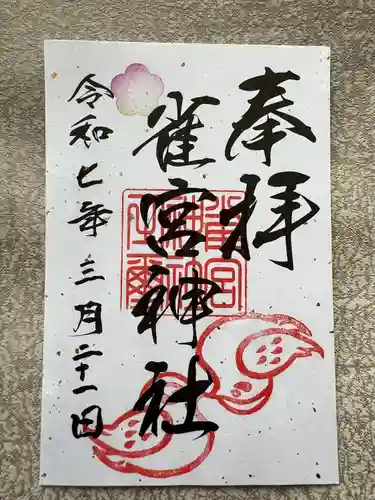 奉拝
雀宮神社
令和七年三月二十一日